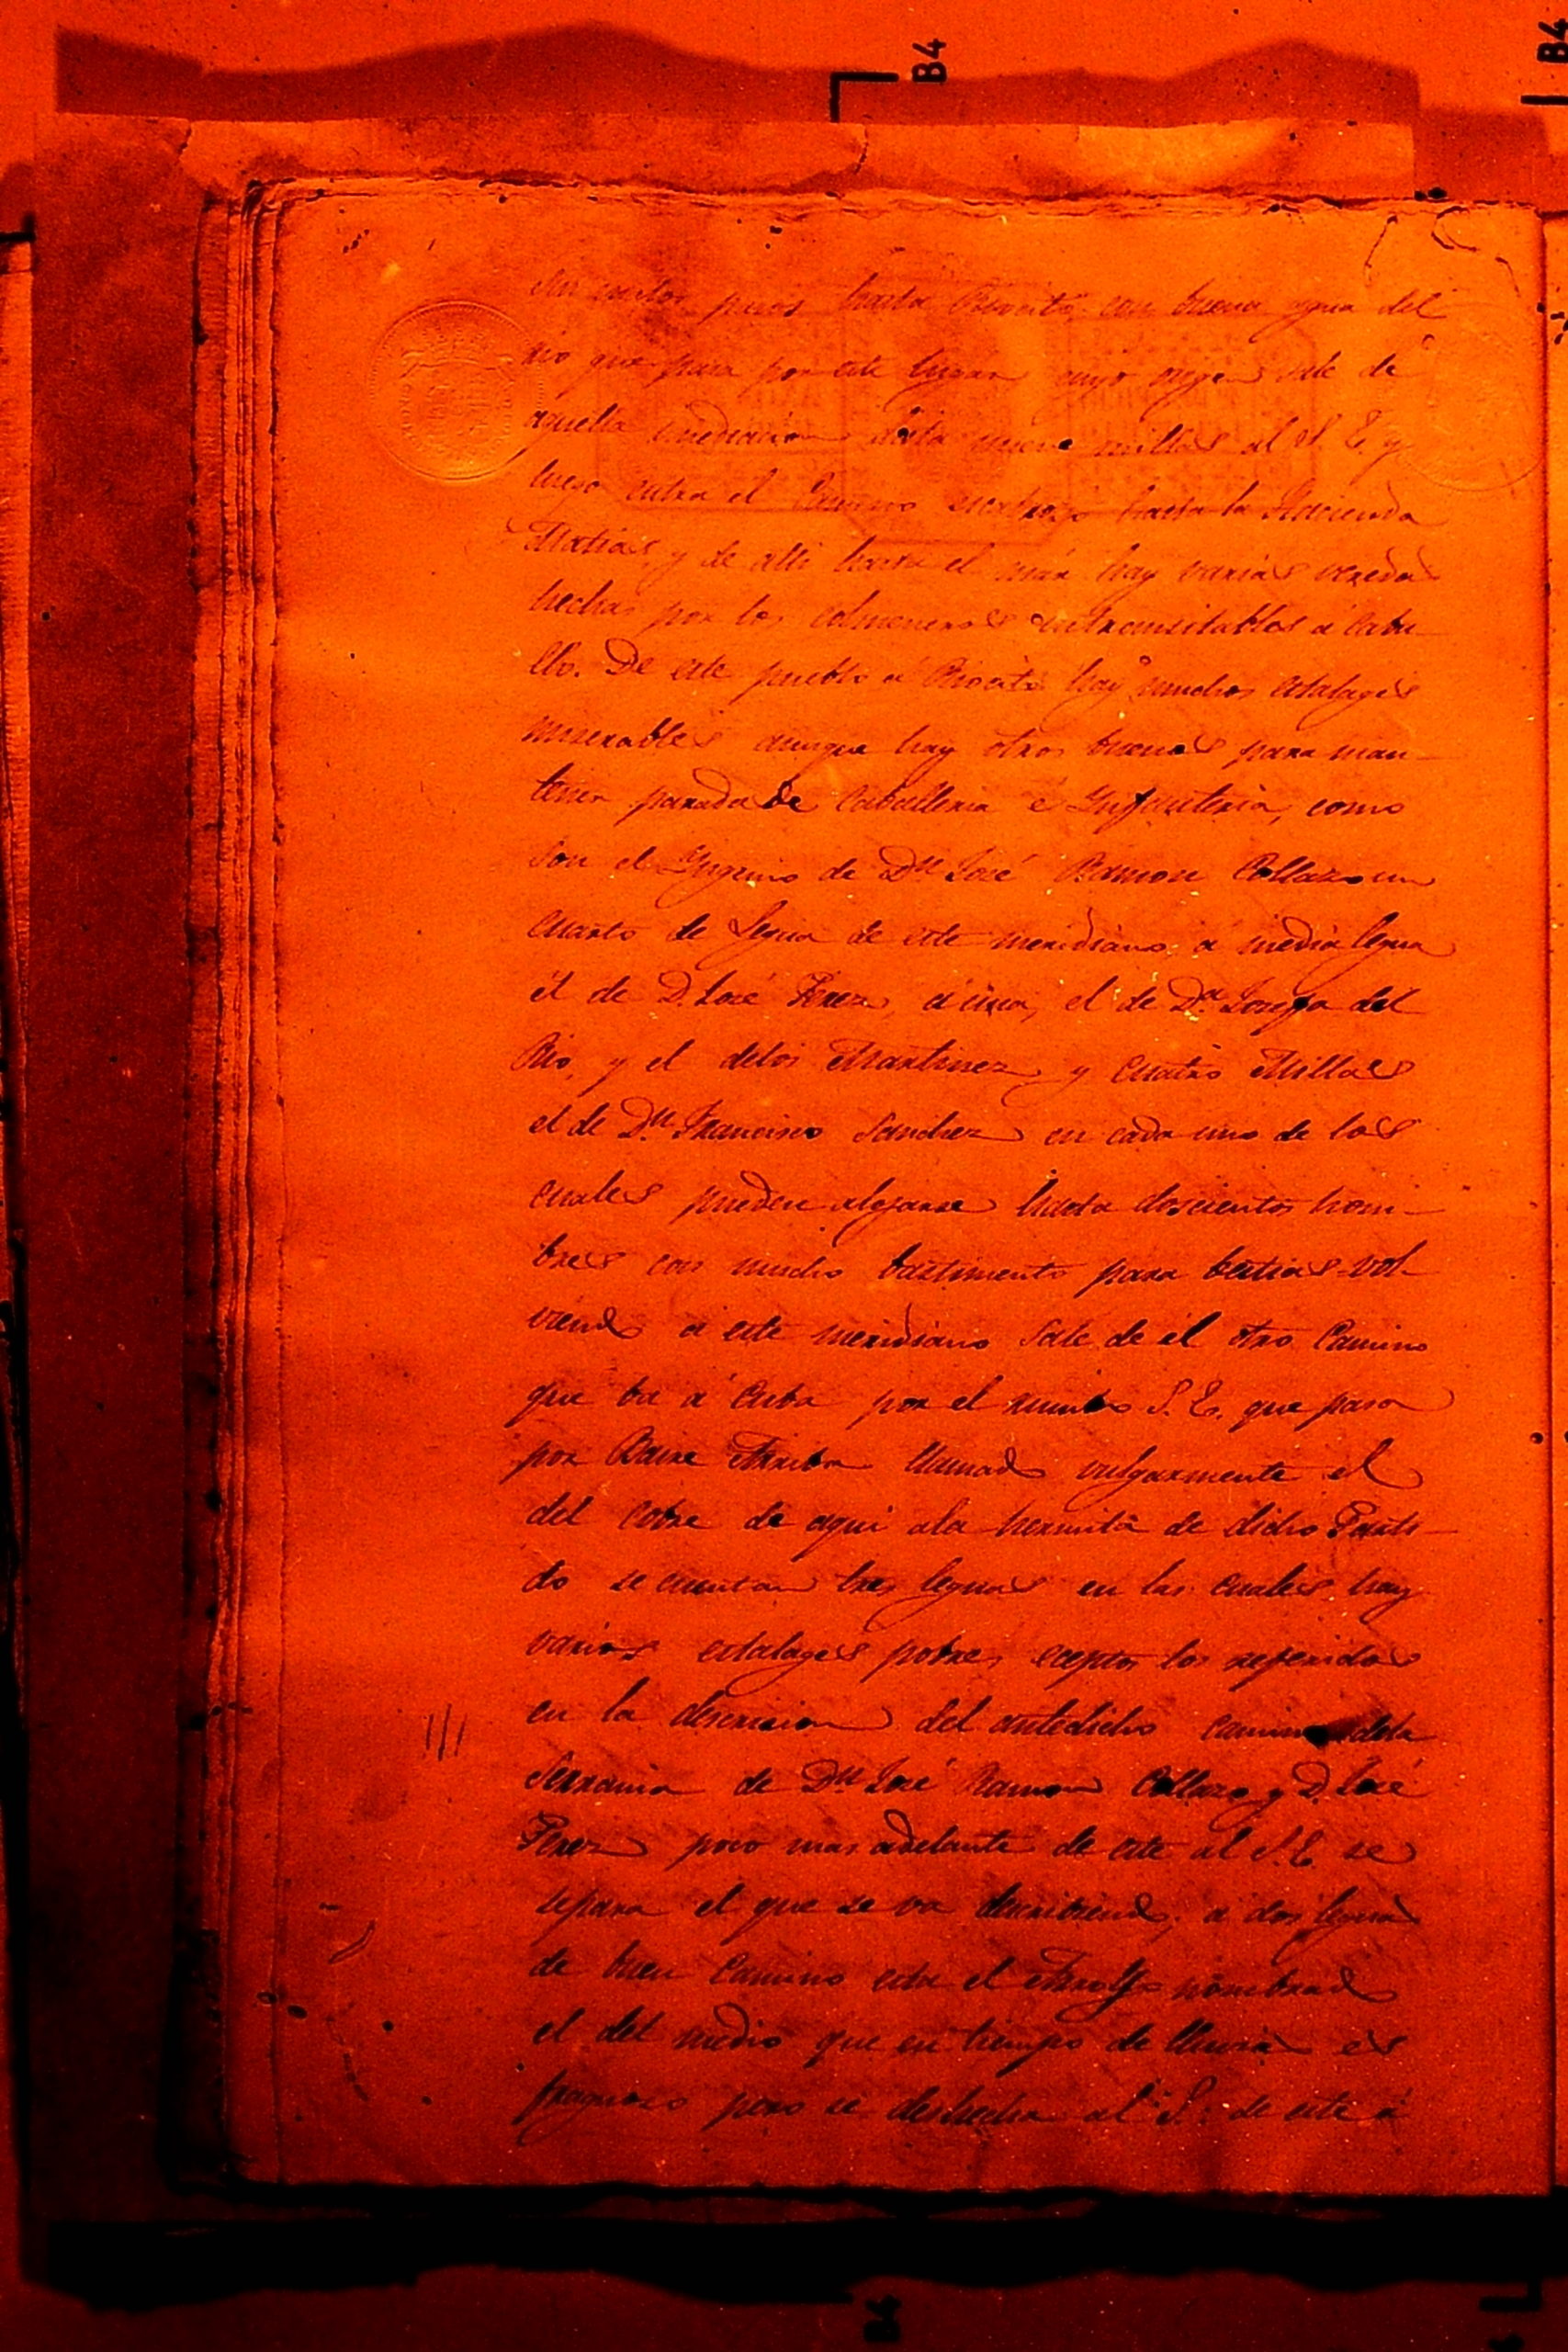 pisos hasta con buena agua del
rio que pasa por este lugar cuyo origen sale de
aquella mediacion dista nueve millas al S. E. y
luego entra el Camino hasta la Hacienda
Matias, y de alli hasta el mar hay varias veredas
hechas por los colmeneros intransitables á Caba-
llo. De este pueblo á hay muchos estalages
miserables aunque hay otros buenos para man-
tener parada de Caballeria é Infanteria, como
son el Yngenio de Dn José Ramon Collazo un
cuarto de legua de este meridiano, á media legua
el de D. José Perez, á una, el de Da Josefa del
Rio, y el delos Martinez y cuatro Millas
el de Dn Francisco Sanchez en cada uno de los
cuales pueden alojarse hasta doscientos hom-
bres con mucho bastimento para bestias vol-
viendo á este meridiano sale de él otro Camino
que ba á Cuba por el rumbo S. E. que pasa
por Baire Arriba llamado vulgarmente el
del Cobre de aqui ala hermita de dicho Parti-
do se cuentan tres leguas en las cuales hay
varios estalages pobres ecepto los referidos
en la descricion del antedicho camino dela
Serrania de Dn José Ramon Collazo y D. José
Perez poco mas adelante de este al S. E. se
separa el que se va descriviendo, á dos leguas
de buen Camino esta el Arroyo nombrado
el del medio que en tiempo de lluvia es
fragoso pero se deshecha al S. de este á
B4
B4
B4